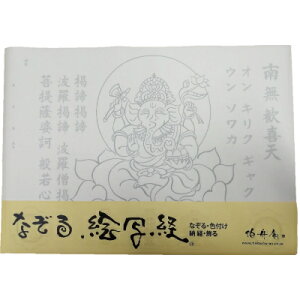 南無歓喜天
オン キリク ギャク
ウン ソワカ
羯諦羯諦
波羅羯諦 波羅僧羯諦
菩提薩婆訶 般若心経
なぞる 絵写経
なぞる・色付け
納経・飾る